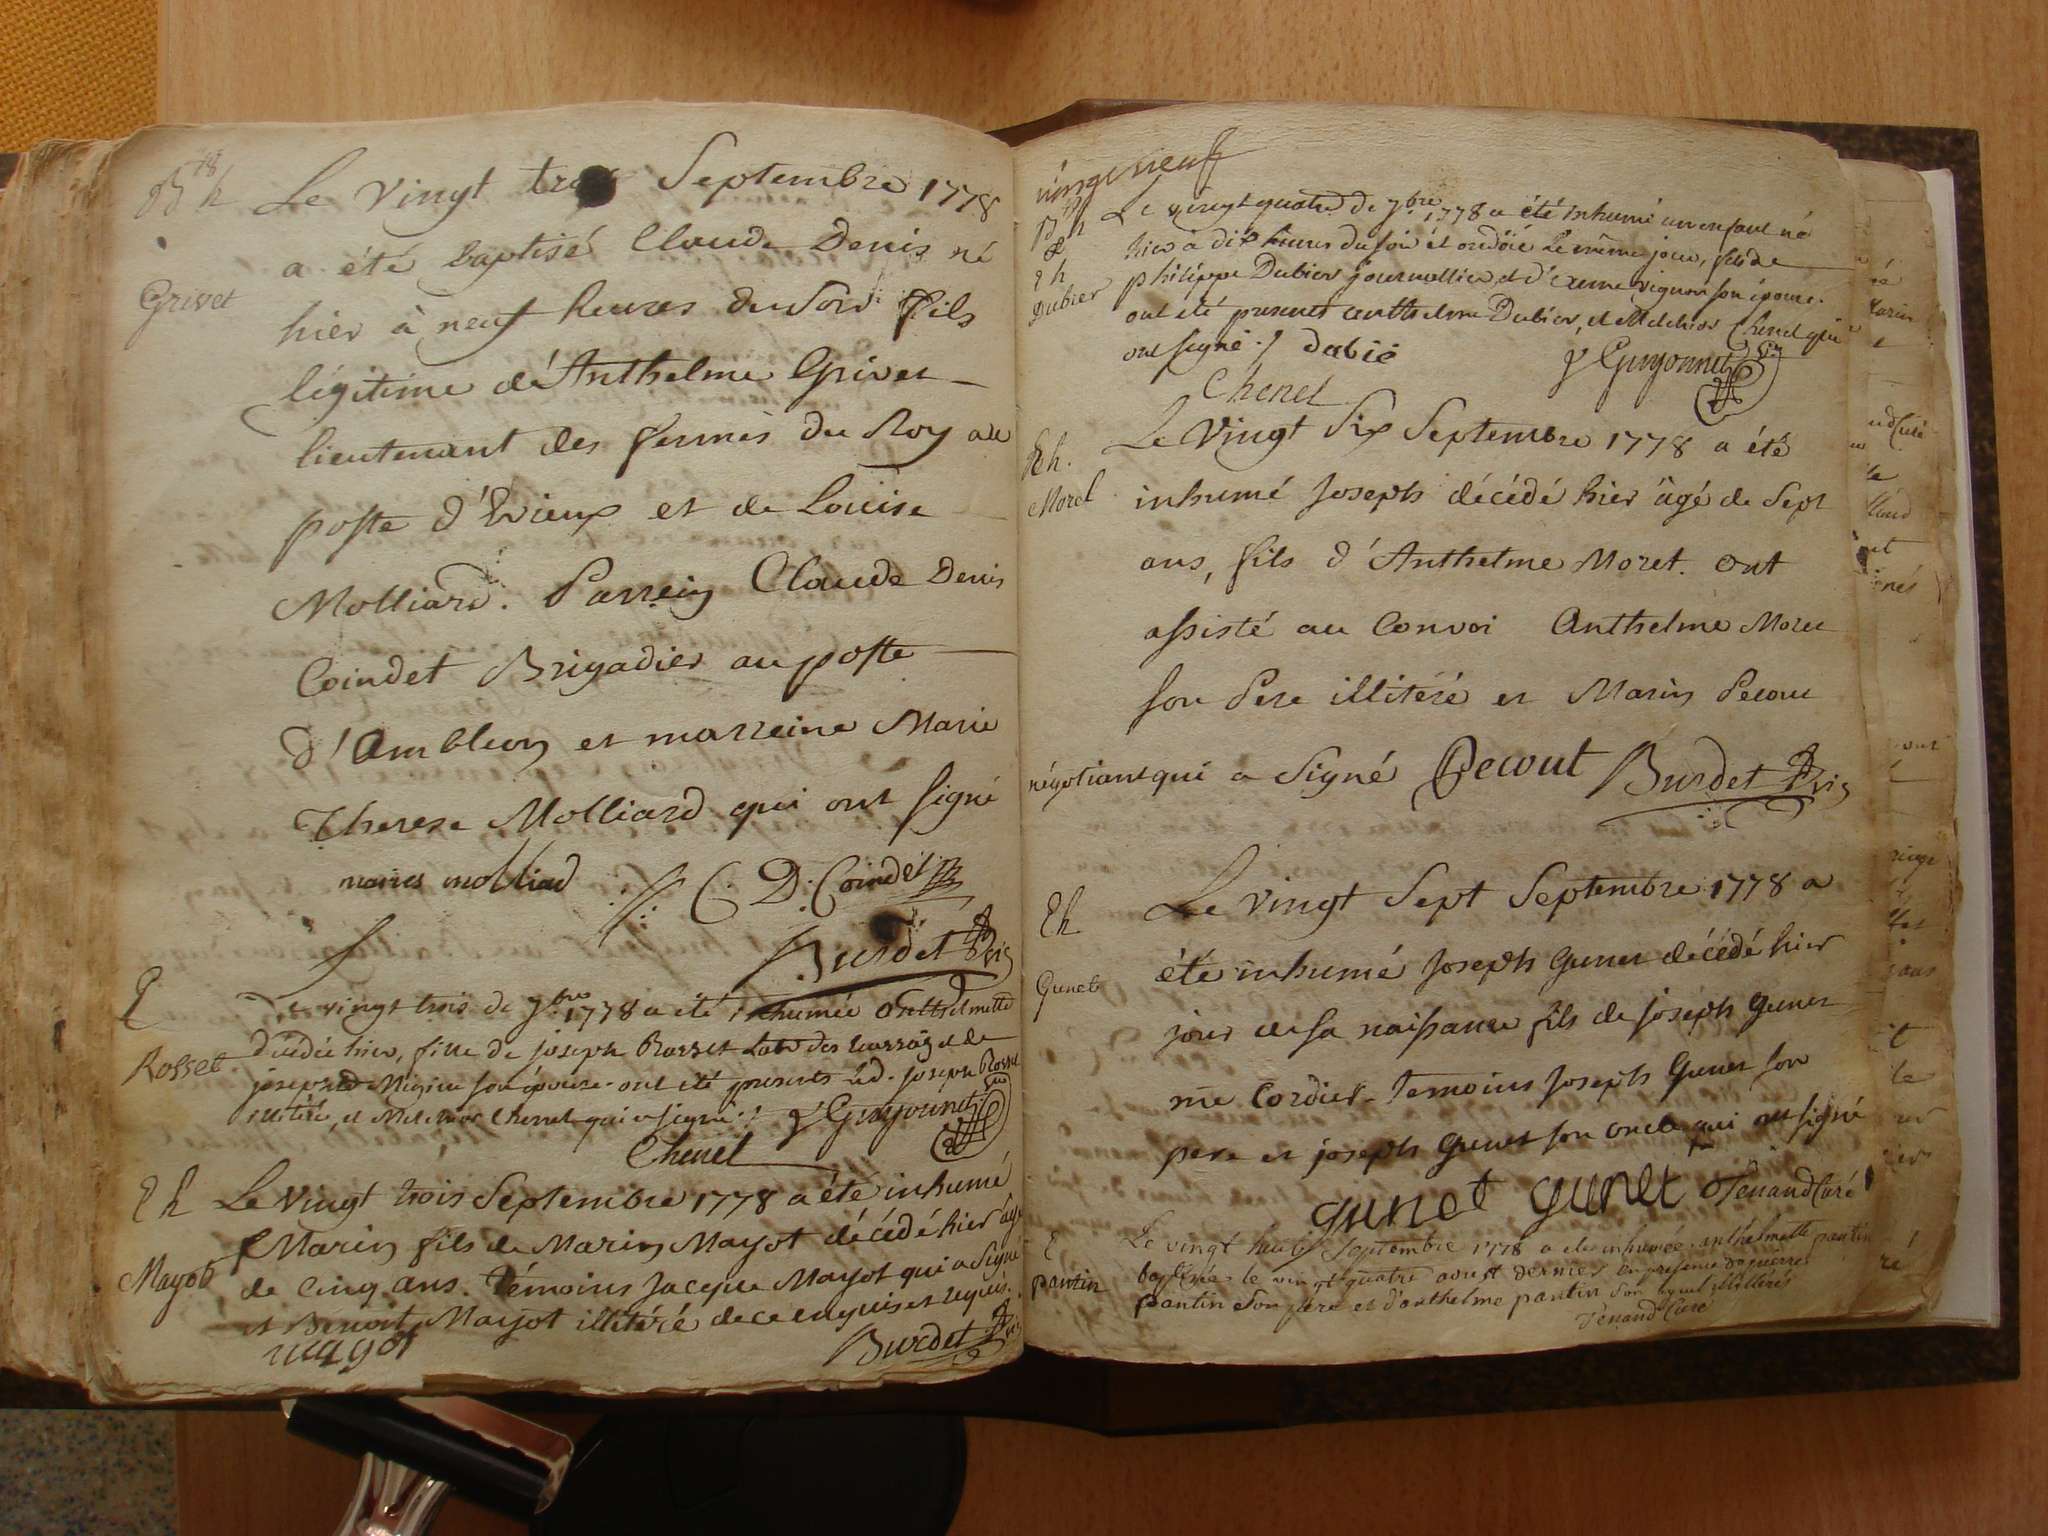 18
B h
Grivet
Le vingt trois Septembre 1778
a été baptisé Claude Denis né
hier à neuf heures du Soir fils
légitime d'Anthelme Grivet
lieutenant des fermes du Roy au
poste d'Evieux et de Louise
Molliard. Parrein Claude Denis
Coindet Brigadier au poste
d'Ambleon et marreine Marie
Therese Molliard qui ont signé
maries molliad C. D. Coindet
Burdet Vic
E
Rosset
Le vingt trois de 7bre 1778 a été inhumée Anthelmette
décédée hier, fille de joseph Rosset et de
son épouse. ont été presents led. joseph Rosset
illitéré, et Melchior Chenel qui a signé. / Guyonnet
Chenel
E h
Mayot
Le vingt trois Septembre 1778 a été inhumé
Marin fils de Marin Mayot décédé hier âgé
de Cinq ans. Témoins Jacque Mayot qui a Signé
et Benoit Mayot illitéré de ce enquis et requis.
mayot Burdet Vic
vingt neuf
B h
&
E h
Dubier
Le vingt quatre de 7bre 1778 a été inhumé un enfant né
hier à dix heures du soir et ondoié le même jour, fils de
philippe Dubier journallier et d' vignon son épouse.
ont été presents anthelme Dubier, et Melchior Chenel qui
ont signé. / dubié Guyonnet
Chenel
E h.
Moret
Le Vingt Six Septembre 1778 a été
inhumé Joseph décédé hier âgé de Sept
ans, fils d'Anthelme Moret. Ont
assisté au Convoi Anthelme Moret
son Pere illitéré et Marin Pecout
négotiant qui a Signé Pecout Burdet Vic
E h
Gunet
Le vingt Sept Septembre 1778 a
été inhumé Joseph Gunet décédé hier
jour de sa naissance fils de joseph Gunet
me Cordier. Temoins Joseph Gunet son
pere et joseph Gunet son oncle qui ont signé
gunet gunet Tenand Curé
E
pantin
Le vingt huit Septembre 1778 a été inhumée anthelmette pantin
baptisée le vingt quatre aoust dernier en presence
pantin son pere et d'anthelme pantin son ayeul illitérés
Tenand Curé